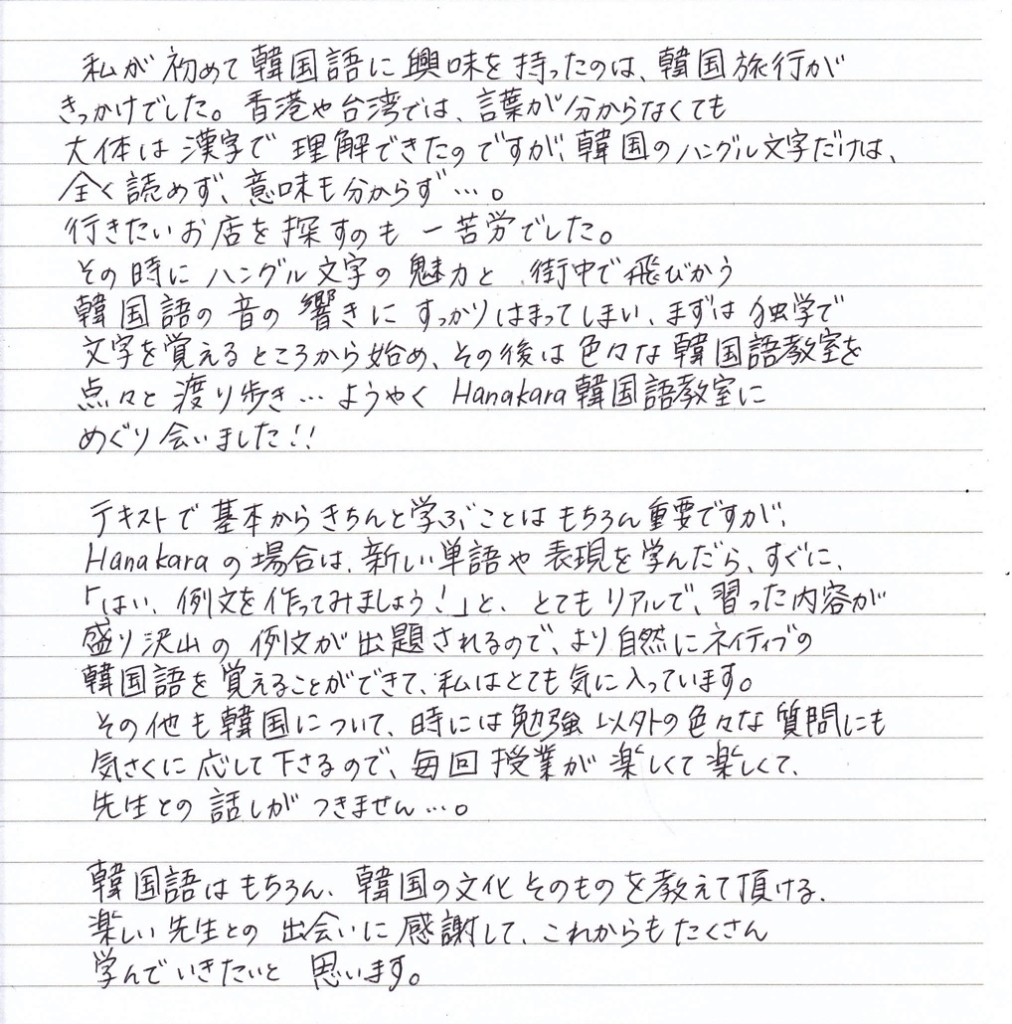 私が初めて韓国語に興味を持ったのは、韓国旅行が
きっかけでした。香港や台湾では、言葉が分からなくても
大体は漢字で理解できたのですが、韓国のハングル文字だけは、
全く読めず、意味も分からず…。
行きたいお店を探すのも一苦労でした。
その時にハングル文字の魅力と、街中で飛びかう
韓国語の音の響きにすっかりはまってしまい、まずは独学で
文字を覚えるところから始め、その後は色々な韓国語教室を
点々と渡り歩き…ようやくHanakara韓国語教室に
めぐり会いました!!
テキストで基本からきちんと学ぶことはもちろん重要ですが、
Hanakaraの場合は、新しい単語や表現を学んだら、すぐに、
「はい、例文を作ってみましょう!」と、とてもリアルで、習った内容が
盛り沢山の例文が出題されるので、より自然にネイティブの
韓国語を覚えることができて、私はとても気に入っています。
その他も韓国について、時には勉強以外の色々な質問にも
気さくに応して下さるので、毎回授業が楽しくて楽しくて、
先生との話しがつきません…。
韓国語はもちろん、韓国の文化そのものを教えて頂ける、
楽しい先生との出会いに感謝して、これからもたくさん
学んでいきたいと思います。